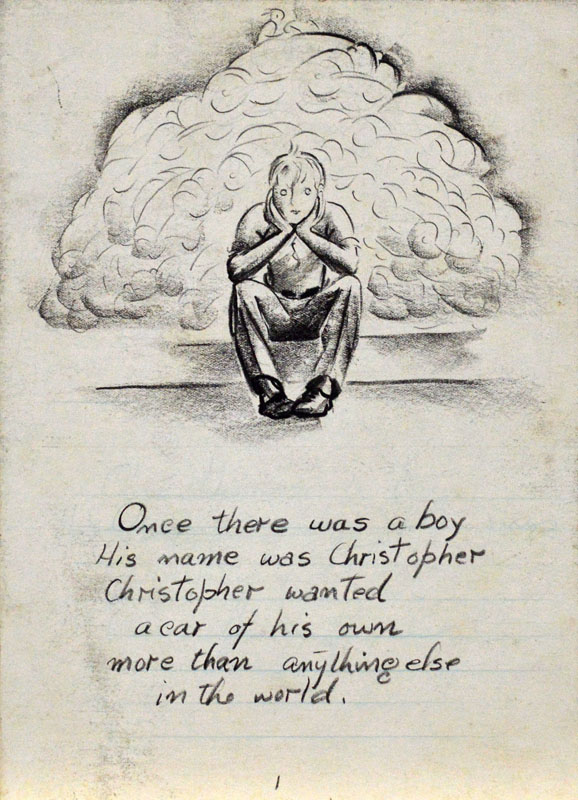 Once there was a boy
His name was Christopher
Christopher wanted
a car of his own
more than anything else
in the world.
1